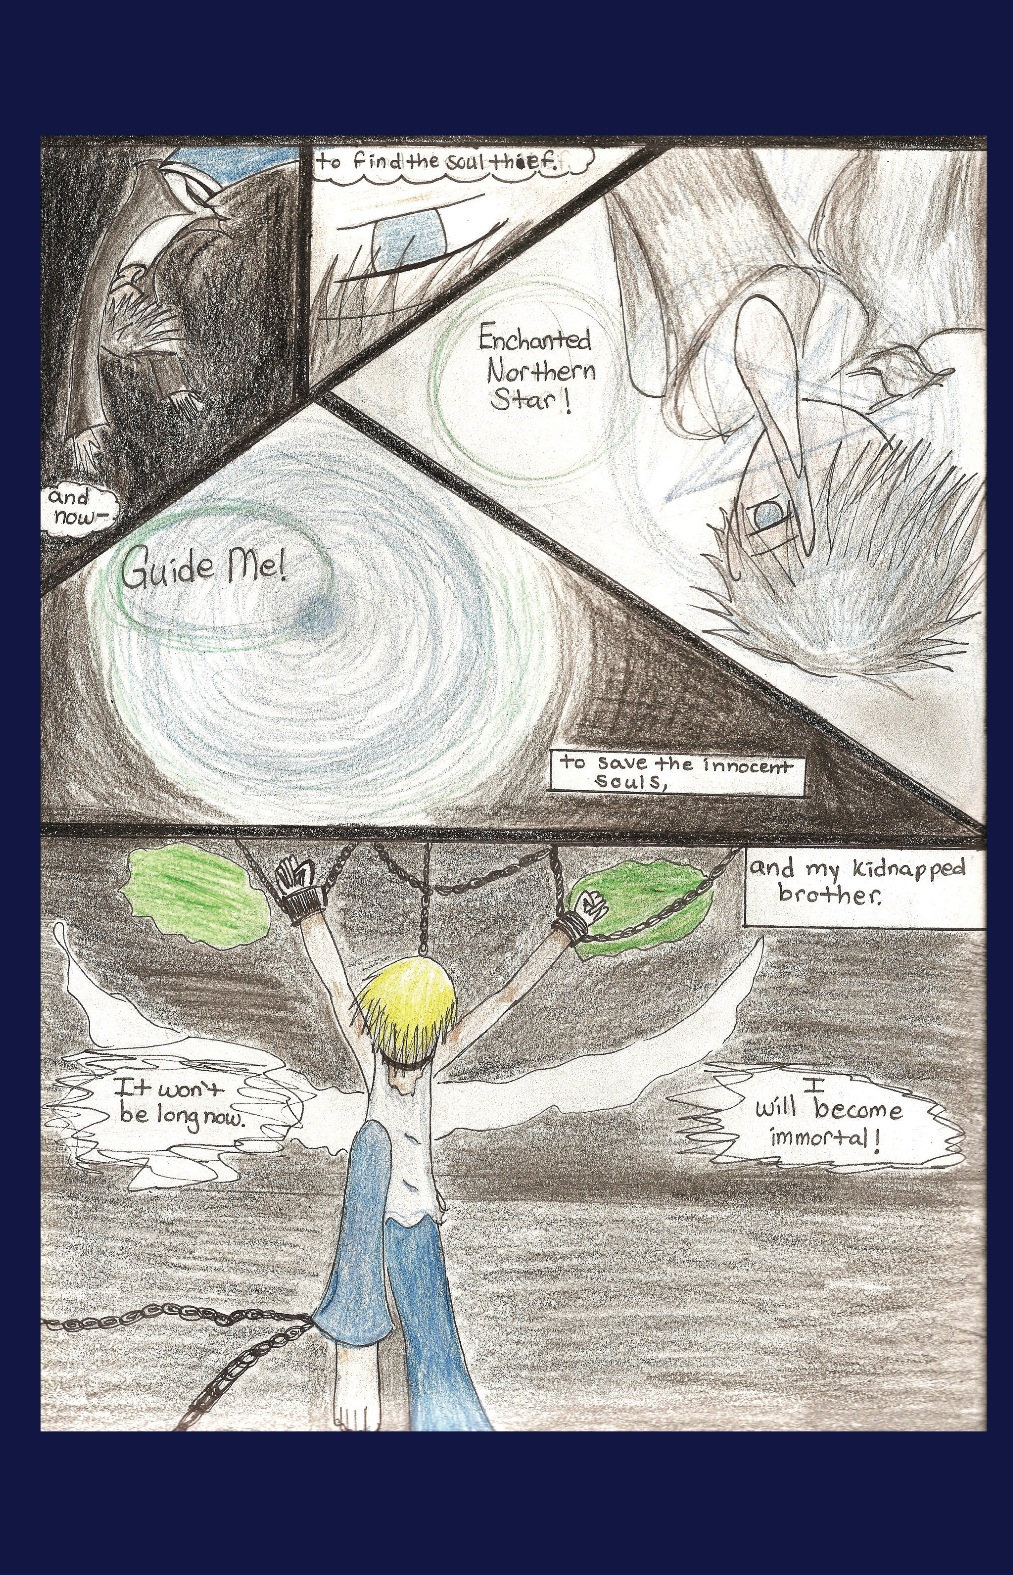 and
now-
to find the soul thief.
Enchanted
Northern
Star!
Guide Me!
to save the innocent
souls,
and my kidnapped
brother.
It won't
be long now.
I
will become
immortal!